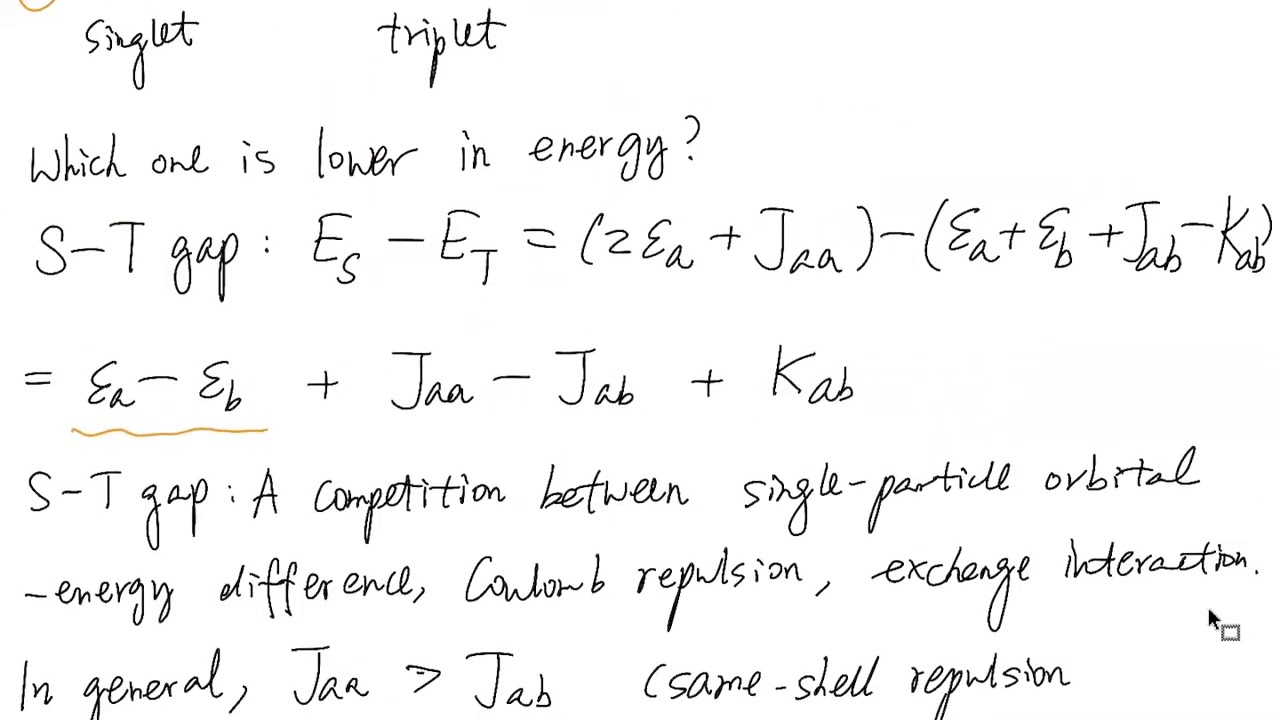 singlet triplet
Which one is lower in energy?
S-T gap: E_S - E_T = (2ε_a + J_aa) - (ε_a + ε_b + J_ab - K_ab)
= ε_a - ε_b + J_aa - J_ab + K_ab
S-T gap: A competition between single-particle orbital
-energy difference, Coulomb repulsion, exchange interaction.
In general, J_aa > J_ab (same-shell repulsion